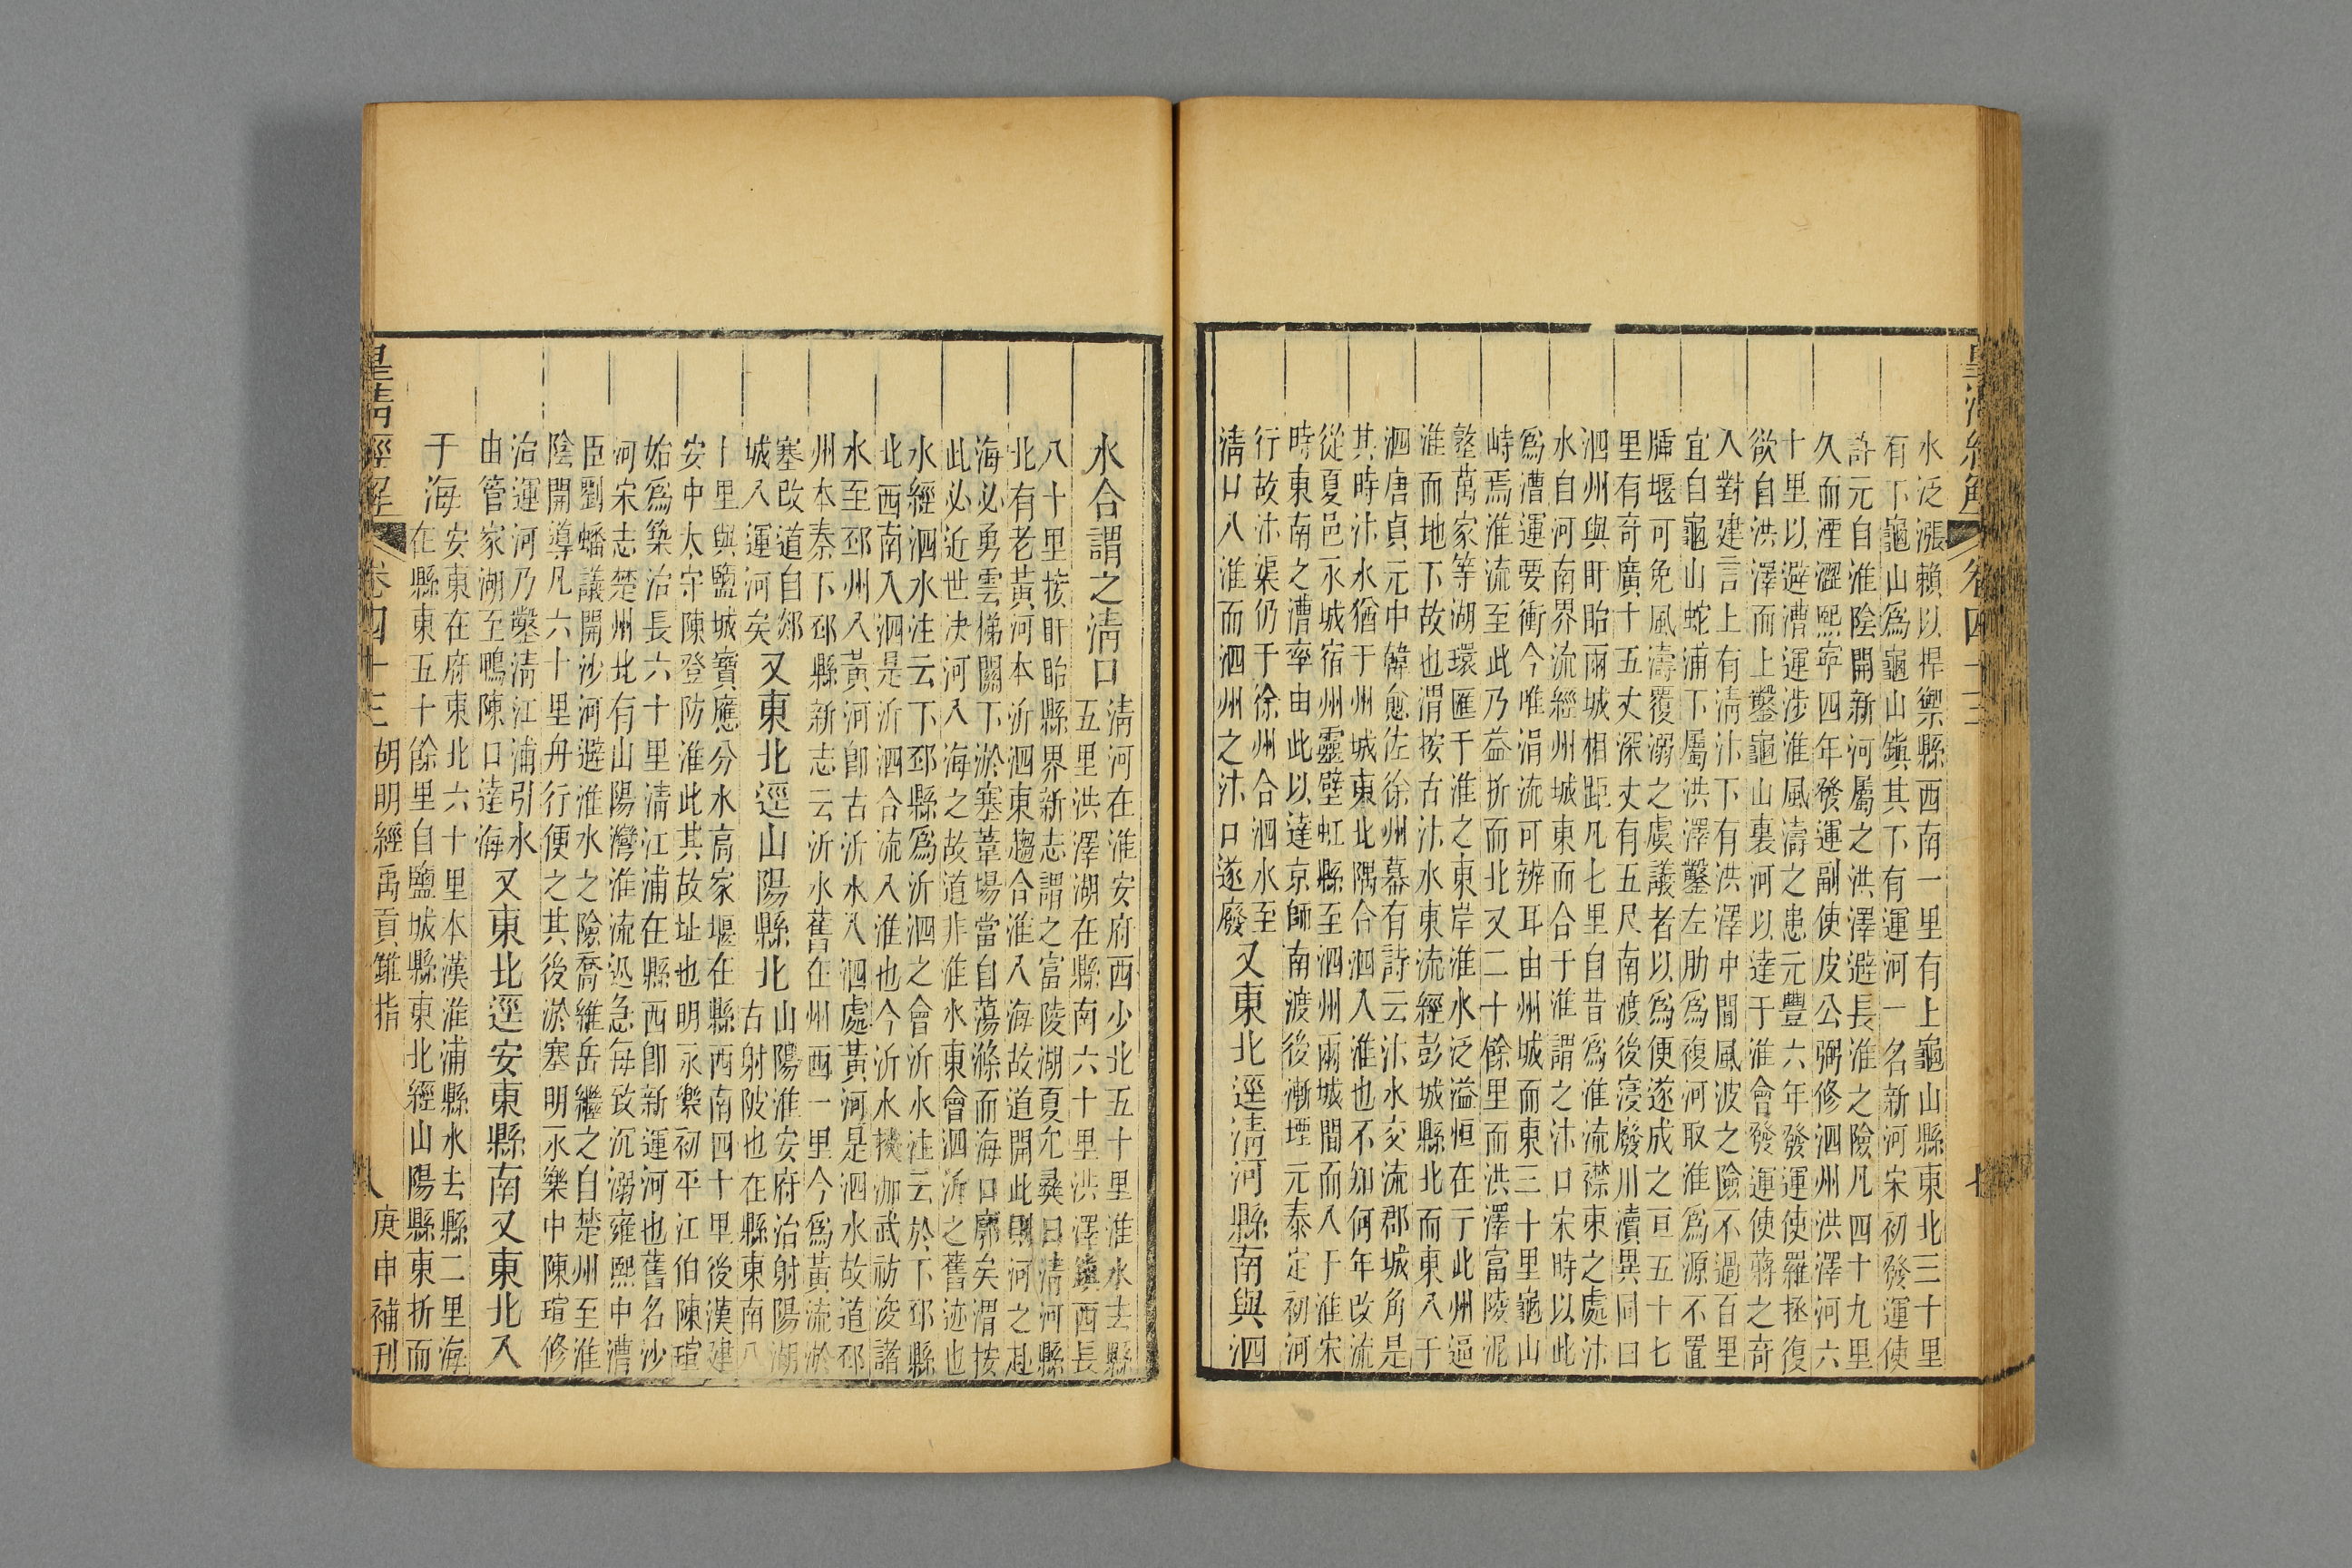 皇清經解
卷四十三
七
水泛漲賴以捍禦縣西南一里有上龜山縣東北三十里
有下龜山爲龜山鎮其下有運河一名新河宋初發運使
許元自淮陰開新河屬之洪澤避長淮之險凡四十九里
久而湮澀熙寧四年發運副使皮公弼修泗州洪澤河六
十里以避漕運涉淮風濤之患元豐六年發運使羅拯復
欲自洪澤而上鑿龜山裏河以達于淮會發運使蔣之奇
入對建言上有淸汴下有洪澤中間風波之險不過百里
宜自龜山蛇浦下屬洪澤鑿左肋爲複河取淮爲源不置
牐堰可免風濤覆溺之虞議者以爲便遂成之亘五十七
里有奇廣十五丈深丈有五尺南渡後寖廢川瀆異同曰
泗州與盱眙兩城相距凡七里自昔爲淮流襟束之處汴
水自河南界流經州城東而合于淮謂之汴口宋時以此
爲漕運要衝今唯涓流可辨耳由州城而東三十里龜山
峙焉淮流至此乃益折而北又二十餘里而洪澤富陵泥
墪萬家等湖環匯于淮之東岸淮水泛溢恒在于此州逼
淮而地下故也渭按古汴水東流經彭城縣北而東入于
泗唐貞元中韓愈佐徐州幕有詩云汴水交流郡城角是
其時汴水猶于州城東北隅合泗入淮也不知何年改流
從夏邑永城宿州靈壁虹縣至泗州兩城間而入于淮宋
時東南之漕率由此以達京師南渡後漸堙元泰定初河
行故汴渠仍于徐州合泗水至
淸口入淮而泗州之汴口遂廢
又東北逕淸河縣南與泗
水合謂之淸口
淸河在淮安府西少北五十里淮水去縣
五里洪澤湖在縣南六十里洪澤鎮西長
八十里按盱眙縣界新志謂之富陵湖夏允彝曰淸河縣
北有老黃河本沂泗東趨合淮入海故道開此則河之赴
海必勇雲梯關下淤塞葦場當自蕩滌而海口廓矣渭按
此必近世决河入海之故道非淮水東會泗沂之舊迹也
水經泗水注云下邳縣爲沂泗之會沂水注云於下邳縣
北西南入泗是沂泗合流入淮也今沂水挾泇武祊浚諸
水至邳州入黃河卽古沂水入泗處黃河是泗水故道邳
州本秦下邳縣新志云沂水舊在州西一里今爲黃流淤
塞改道自郯
城入運河矣
又東北逕山陽縣北
山陽淮安府治射陽湖
古射陂也在縣東南八
十里與鹽城寶應分水高家堰在縣西南四十里後漢建
安中太守陳登防淮此其故址也明永樂初平江伯陳瑄
始爲築治長六十里淸江浦在縣西卽新運河也舊名沙
河宋志楚州北有山陽灣淮流迅急每致沉溺雍熙中漕
臣劉蟠議開沙河避淮水之險喬維岳繼之自楚州至淮
陰開導凡六十里舟行便之其後淤塞明永樂中陳瑄修
治運河乃鑿淸江浦引水
由管家湖至鴨陳口達海
又東北逕安東縣南又東北入
于海
安東在府東北六十里本漢淮浦縣水去縣二里海
在縣東五十餘里自鹽城縣東北經山陽縣東折而
皇清經解
卷四十三
胡明經禹貢錐指
八
庚申補刊